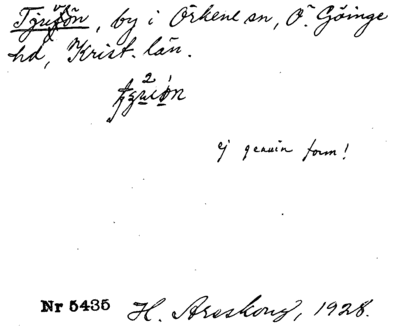 , by i Örkene sn, Ö. Göinge
hd, Krist. län.
ej genuin form!
Nr 5435 H. Areskoug, 1928.